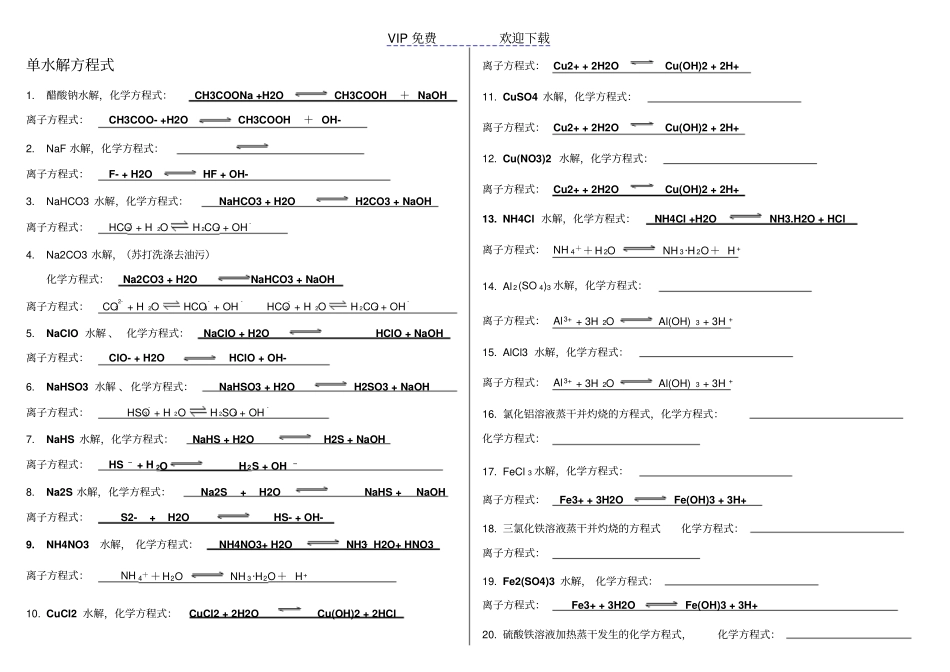 VIP 免费 欢迎下载
单水解方程式
1. 醋酸钠水解，化学方程式： CH3COONa +H2O ⇌ CH3COOH ＋ NaOH
离子方程式： CH3COO- +H2O ⇌ CH3COOH ＋ OH-
2. NaF 水解，化学方程式： ⇌
离子方程式： F- + H2O ⇌ HF + OH-
3. NaHCO3 水解，化学方程式： NaHCO3 + H2O ⇌ H2CO3 + NaOH
离子方程式： HCO3- + H2O ⇌ H2CO3 + OH-
4. Na2CO3 水解，（苏打洗涤去油污）
化学方程式： Na2CO3 + H2O ⇌ NaHCO3 + NaOH
离子方程式： CO32- + H2O ⇌ HCO3- + OH- HCO3- + H2O ⇌ H2CO3 + OH-
5. NaClO 水解 、 化学方程式： NaClO + H2O ⇌ HClO + NaOH
离子方程式： ClO- + H2O ⇌ HClO + OH-
6. NaHSO3 水解 、化学方程式： NaHSO3 + H2O ⇌ H2SO3 + NaOH
离子方程式： HSO3- + H2O ⇌ H2SO3 + OH-
7. NaHS 水解，化学方程式： NaHS + H2O ⇌ H2S + NaOH
离子方程式： HS－ + H2O ⇌ H2S + OH－
8. Na2S 水解，化学方程式： Na2S + H2O ⇌ NaHS + NaOH
离子方程式： S2- + H2O ⇌ HS- + OH-
9. NH4NO3 水解， 化学方程式： NH4NO3+ H2O ⇌ NH3·H2O+ HNO3
离子方程式： NH4＋＋H2O ⇌ NH3·H2O＋ H+
10. CuCl2 水解，化学方程式： CuCl2 + 2H2O ⇌ Cu(OH)2 + 2HCl
离子方程式： Cu2+ + 2H2O ⇌ Cu(OH)2 + 2H+
11. CuSO4 水解，化学方程式：
离子方程式： Cu2+ + 2H2O ⇌ Cu(OH)2 + 2H+
12. Cu(NO3)2 水解，化学方程式：
离子方程式： Cu2+ + 2H2O ⇌ Cu(OH)2 + 2H+
13. NH4Cl 水解，化学方程式： NH4Cl +H2O ⇌ NH3.H2O + HCl
离子方程式： NH4＋＋H2O ⇌ NH3·H2O＋ H+
14. Al2(SO4)3 水解，化学方程式：
离子方程式： Al3+ + 3H2O ⇌ Al(OH)3 + 3H+
15. AlCl3 水解，化学方程式：
离子方程式： Al3+ + 3H2O ⇌ Al(OH)3 + 3H+
16. 氯化铝溶液蒸干并灼烧的方程式，化学方程式：
化学方程式：
17. FeCl3 水解，化学方程式：
离子方程式： Fe3+ + 3H2O ⇌ Fe(OH)3 + 3H+
18. 三氯化铁溶液蒸干并灼烧的方程式 化学方程式：
离子方程式：
19. Fe2(SO4)3 水解， 化学方程式：
离子方程式： Fe3+ + 3H2O ⇌ Fe(OH)3 + 3H+
20. 硫酸铁溶液加热蒸干发生的化学方程式， 化学方程式：